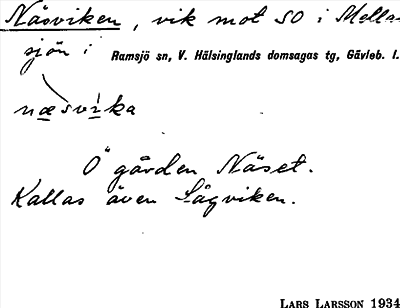 Näsviken, vik mot SO i Mella-
sjön i Ramsjö sn, V. Hälsinglands domsagas tg, Gävleb. l.
næsvìka
Ö gården Näset.
Kallas även Sågviken.
LARS LARSSON 1934